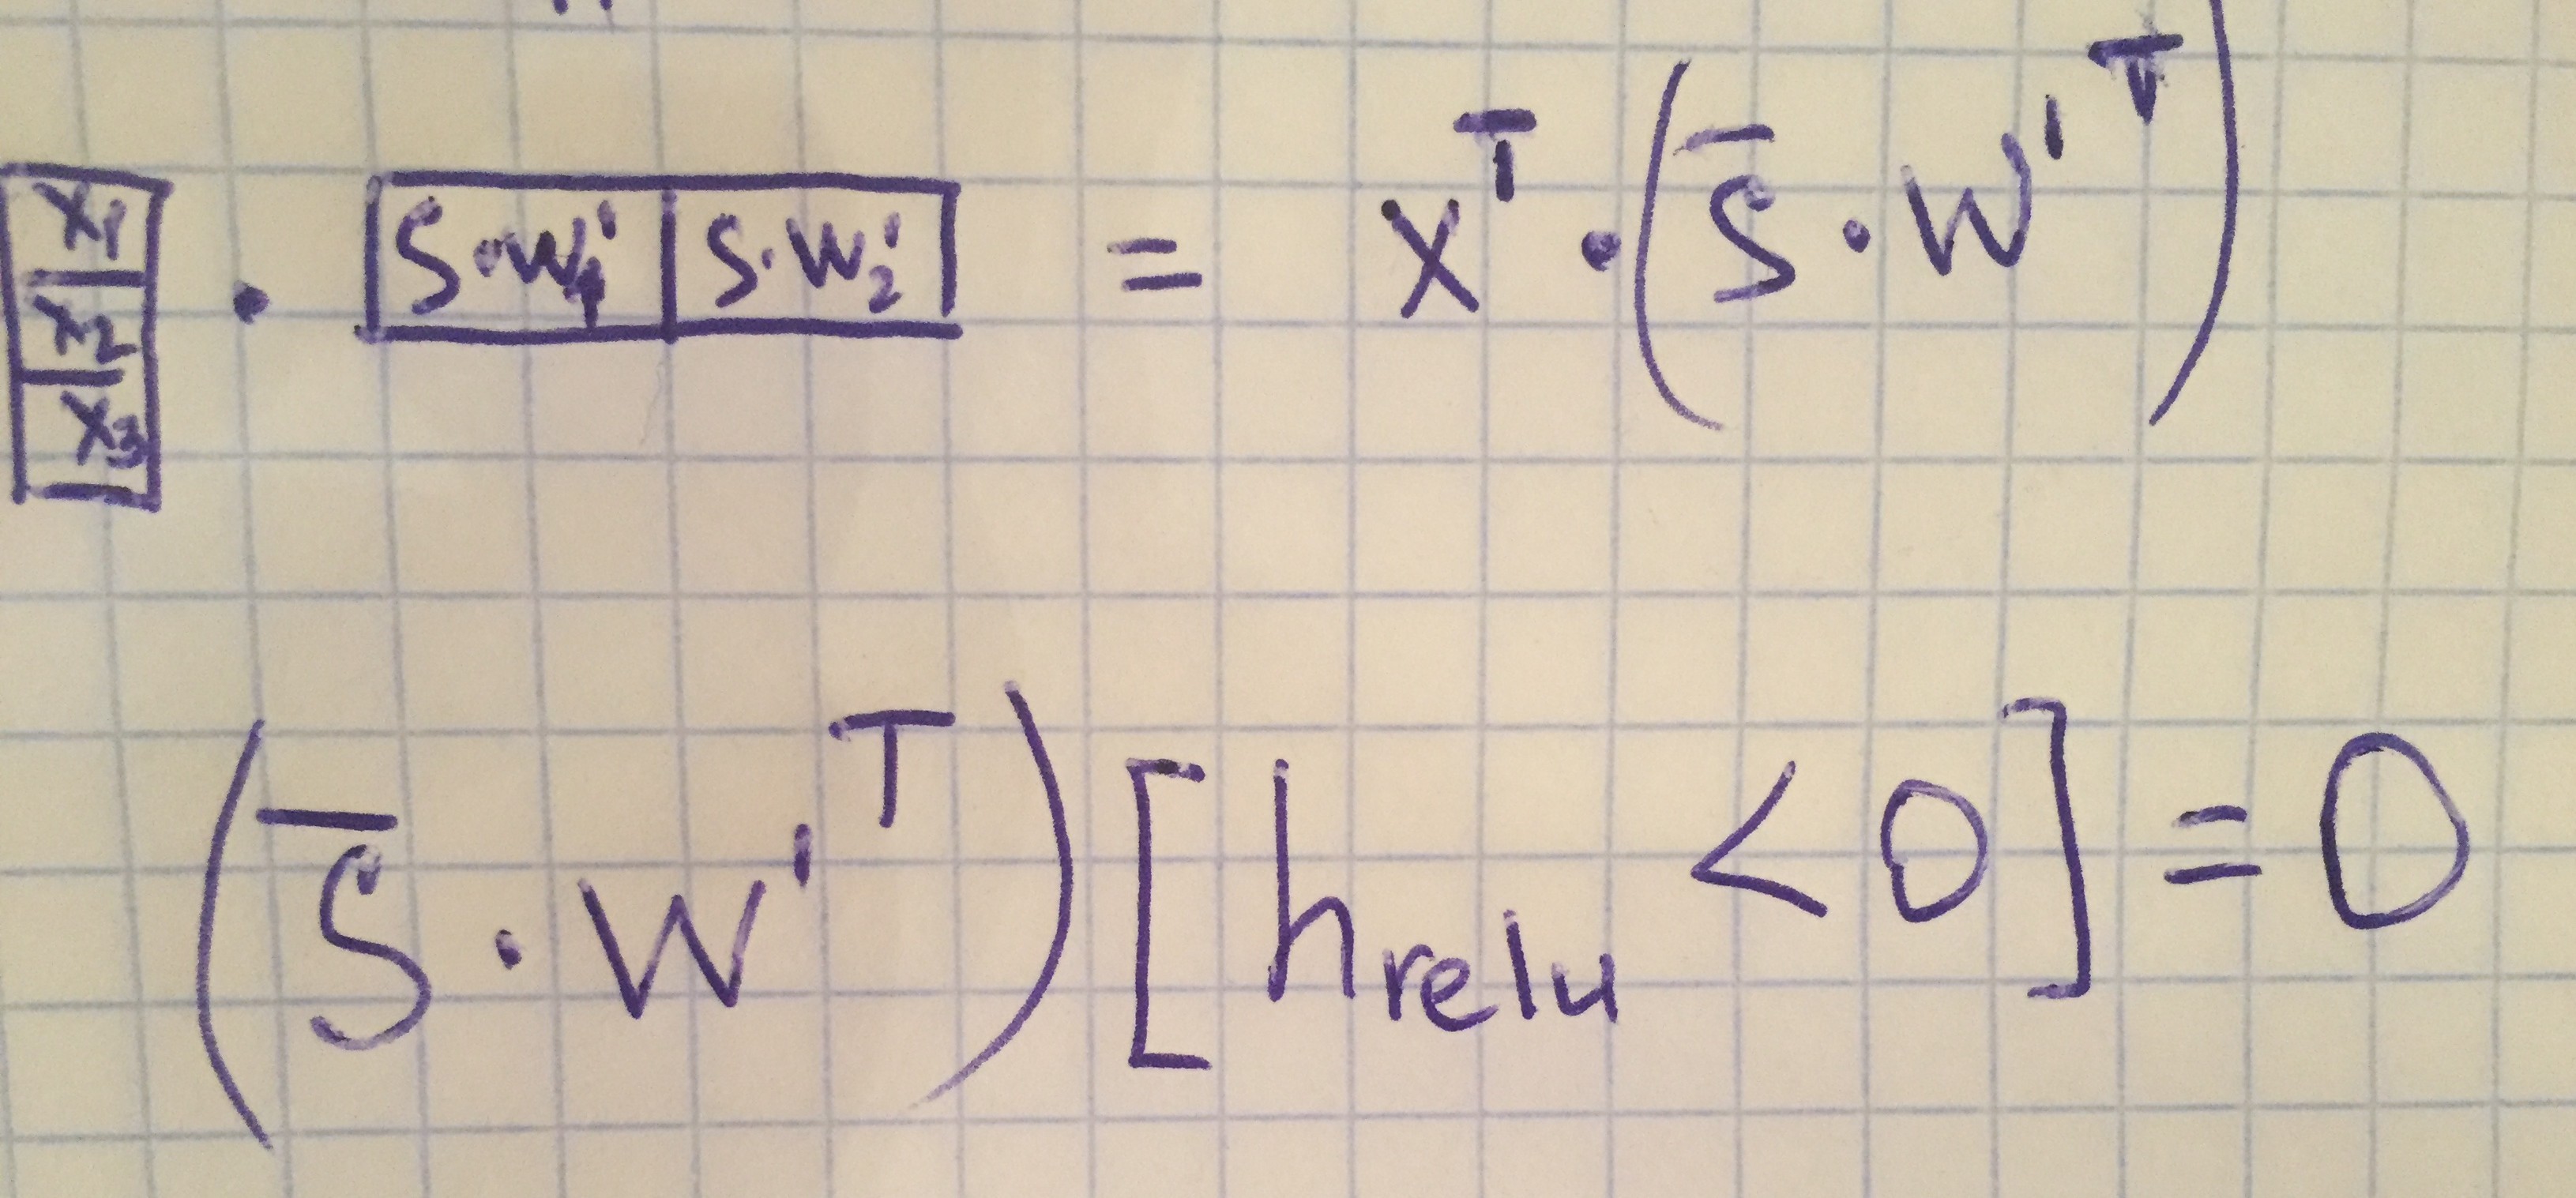 x₁ x₂ x₃ · S·w₁' S·w₂' = x^T · (S̄ · W'^T)
(S̄ · W'^T) [h_relu < 0] = 0